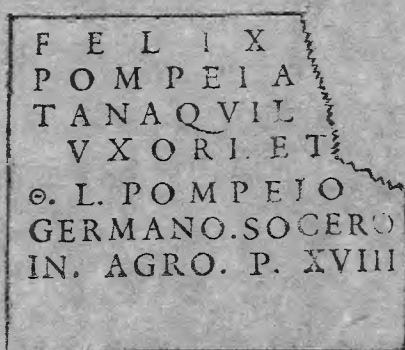 FELIX
POMPEIA
TANAQVIL
VXORI. ET
Θ. L. POMPEIO
GERMANO. SOCERO
IN. AGRO. P. XVIII